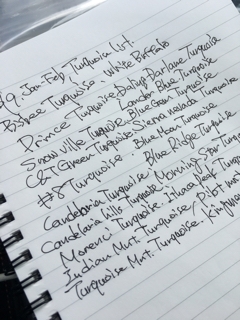 19. Jan-Feb, Turquoise List
Bisbee Turquoise. White Buffalo
Prince Turquoise Darling Darlane Turquoise
Snowville Turquoise Lander Blue Turquoise
C&T Green Turquoise Blue Green Turquoise
Sierra Nevada Turquoise
#8 Turquoise. Blue Moon Turquoise
Blue Ridge Turquoise
Candelaria Turquoise. Morning Star Turquoise
Candelaria Hills Turquoise. Ithaca Peak Turquoise
Morenci Turquoise.
Indian Mnt. Turquoise / Pilot Mnt
Turquoise Mnt. Turquoise. Kingman